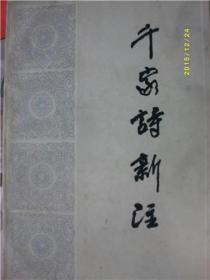 2015/12/24
千家詩新注